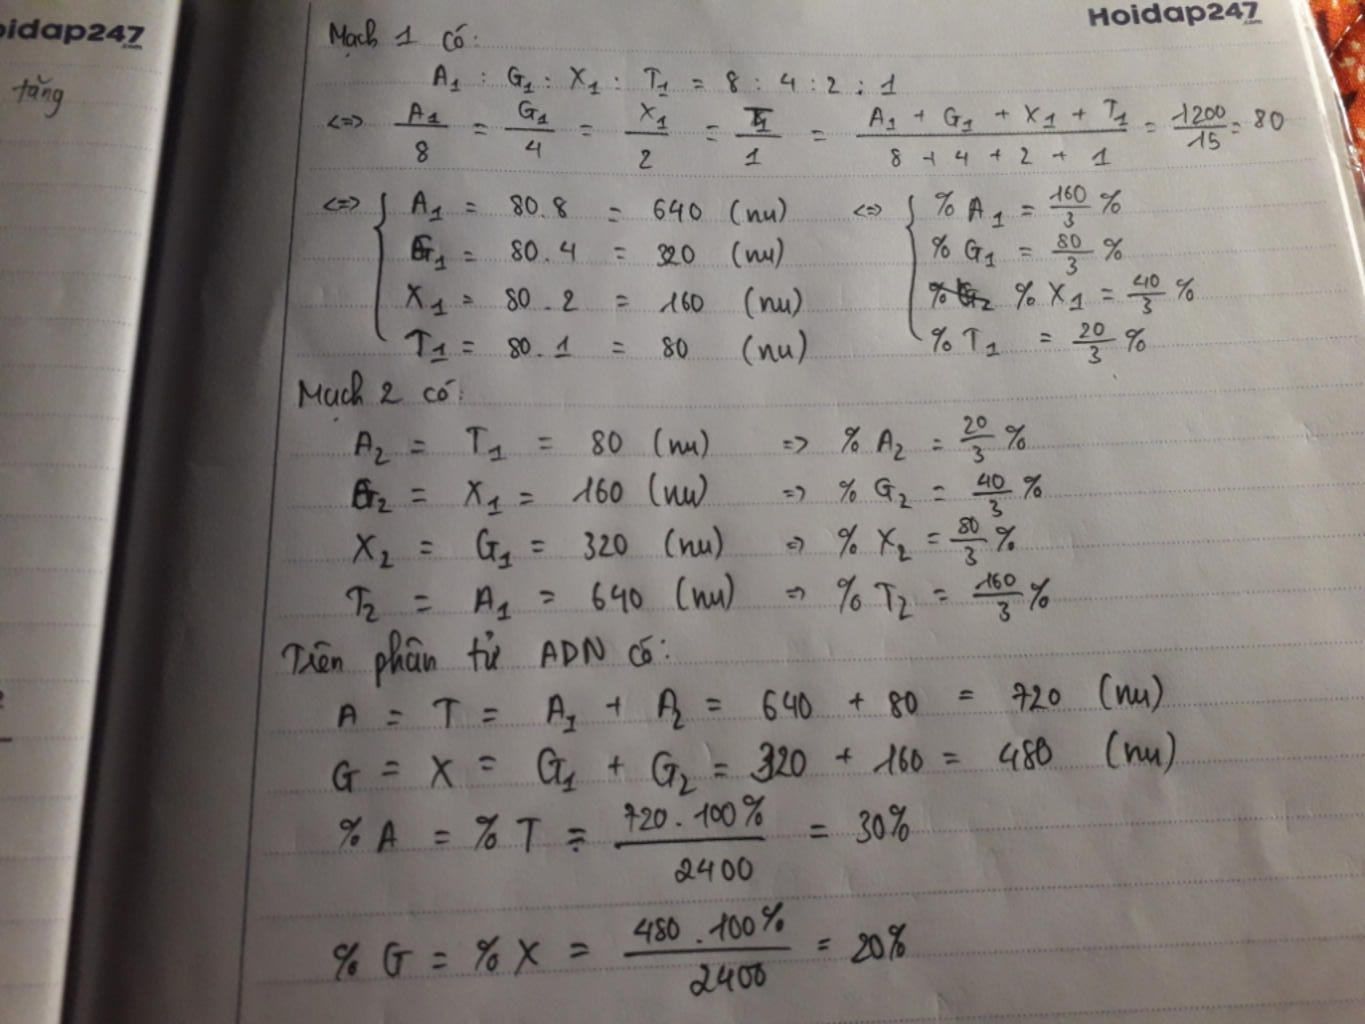 oidap247
.com
tăng
Hoidap247
.com
Mạch 1 có:
A₁ : G₁ : X₁ : T₁ = 8 : 4 : 2 : 1
<=> A₁/8 = G₁/4 = X₁/2 = T₁/1 = (A₁ + G₁ + X₁ + T₁)/(8 + 4 + 2 + 1) = 1200/15 = 80
<=> { A₁ = 80.8 = 640 (nu) <=> { % A₁ = 160/3 %
G₁ = 80.4 = 320 (nu) % G₁ = 80/3 %
X₁ = 80.2 = 160 (nu) % X₁ = 40/3 %
T₁ = 80.1 = 80 (nu) % T₁ = 20/3 %
Mạch 2 có:
A₂ = T₁ = 80 (nu) => % A₂ = 20/3 %
G₂ = X₁ = 160 (nu) => % G₂ = 40/3 %
X₂ = G₁ = 320 (nu) => % X₂ = 80/3 %
T₂ = A₁ = 640 (nu) => % T₂ = 160/3 %
Trên phân tử ADN có:
A = T = A₁ + A₂ = 640 + 80 = 720 (nu)
G = X = G₁ + G₂ = 320 + 160 = 480 (nu)
% A = % T = 720.100%/2400 = 30%
% G = % X = 480.100%/2400 = 20%